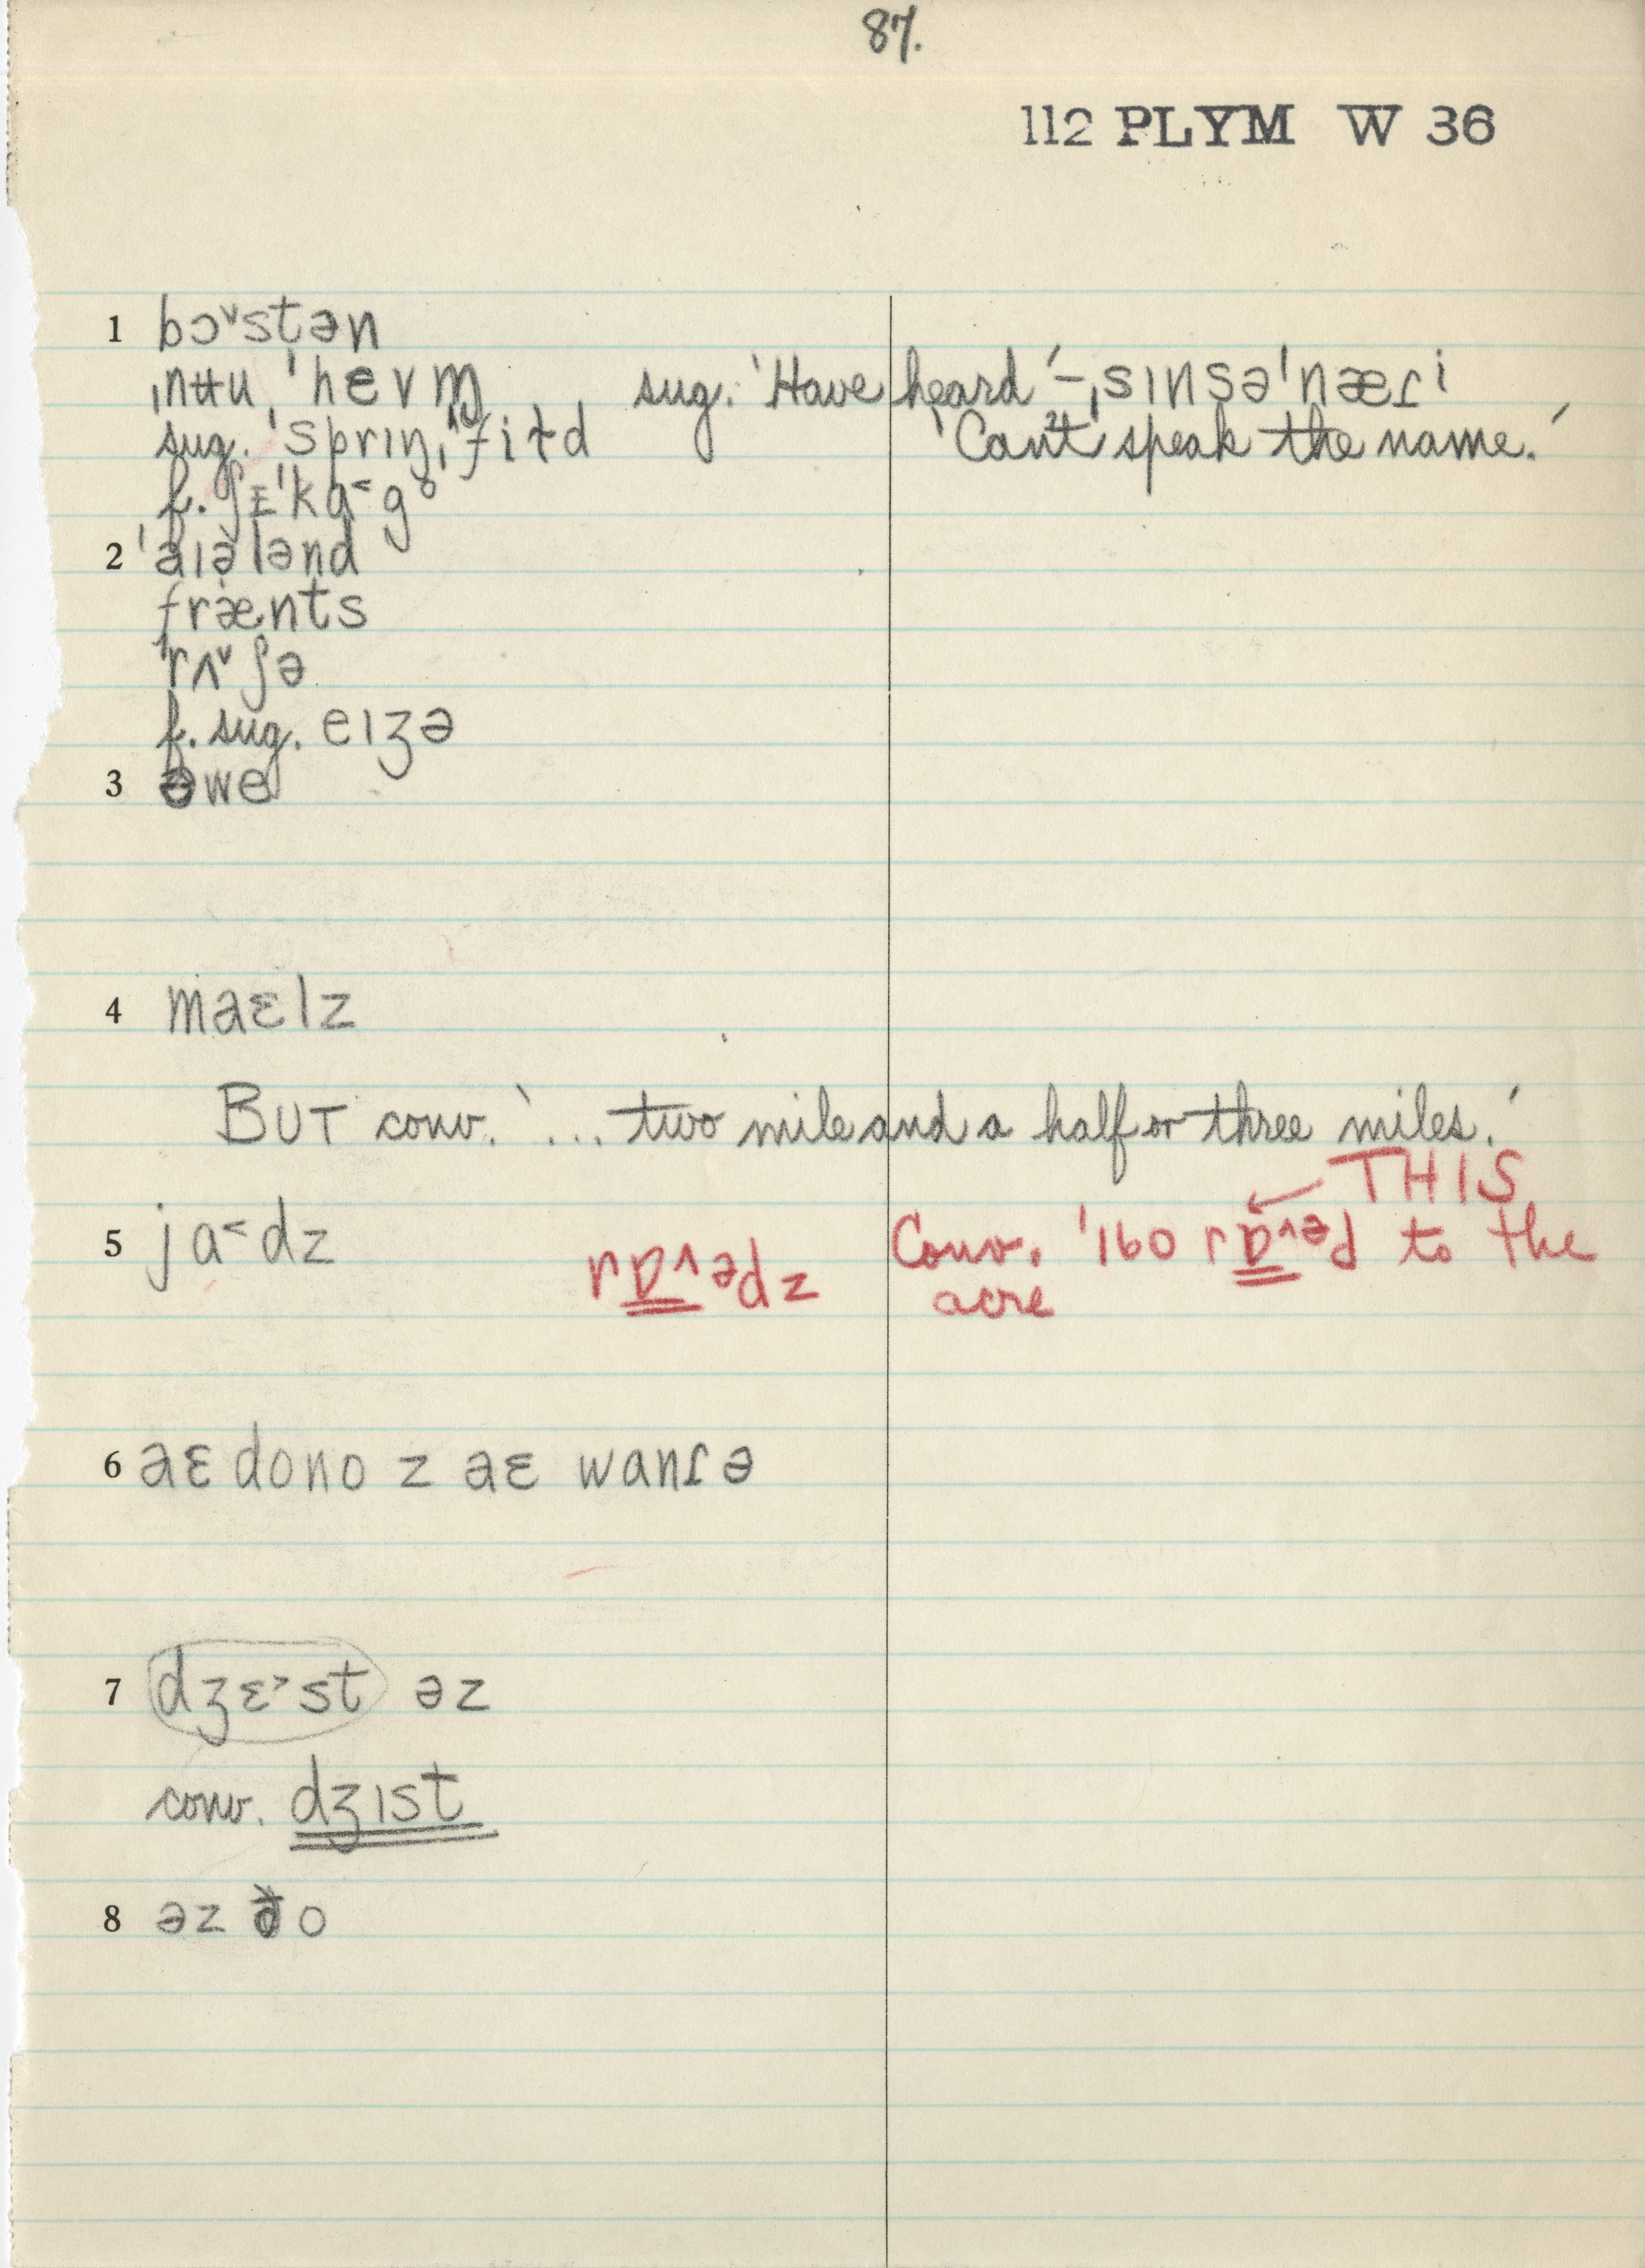 87.
112 PLYM W 36
1 bɔ˅stən
ˌnʉu ˈhevm̩ sug. 'Have heard' – ˌsɪnsəˈnæɾi
sug. ˈsprɪŋˌfiɫd 'Can't speak the name.'
f. ʃɪˈkɑ˂go
2 ˈaɪələnd
frænts
ˈrʌ˅ʃə
f. sug. eɪʒə
3 əwe
4 maɛlz
BUT conv. '... two mile and a half or three miles.'
THIS
5 jɑ˂dz rɒ˅ədz Conv. '160 rɒ˄əd to the
acre
6 aɛ dono z aɛ wanɾə
7 dʒɛ˃st əz
conv. dʒɪst
8 əz ðo